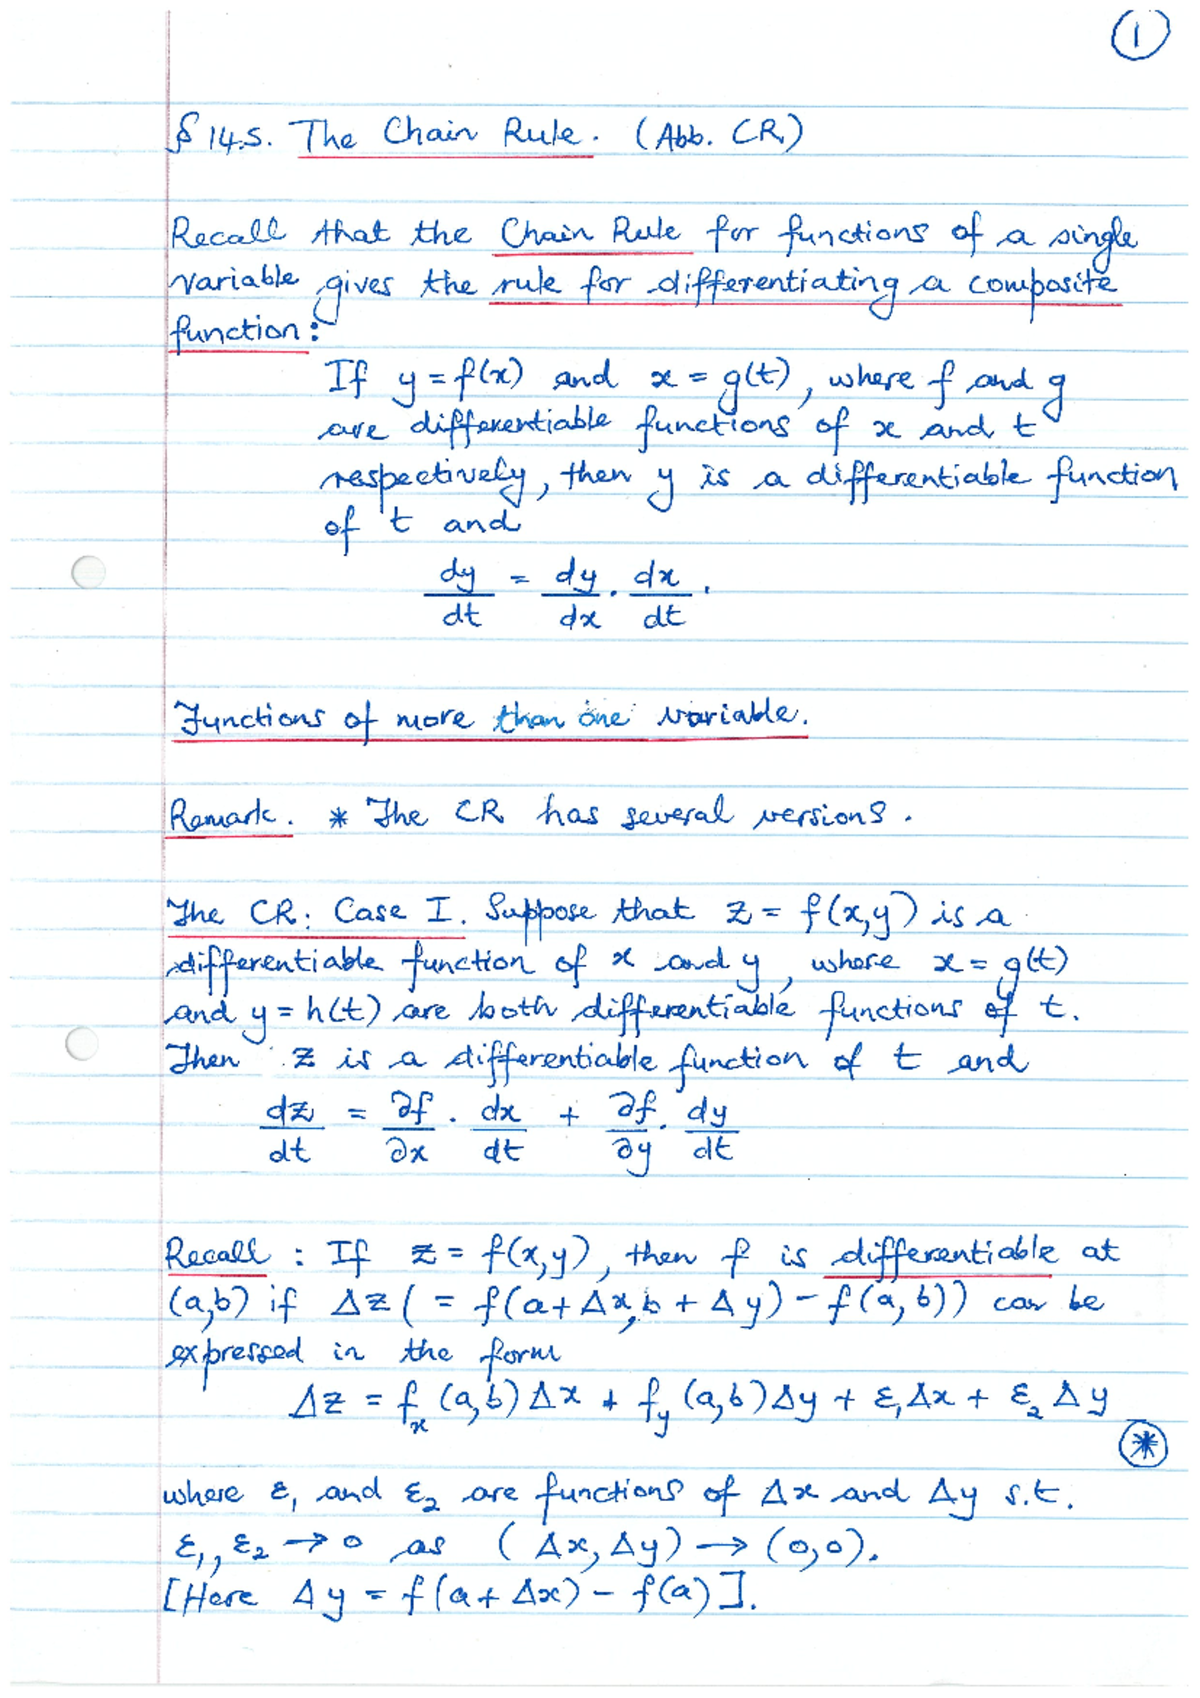 1
§ 14.5. The Chain Rule. (Abb. CR)
Recall that the Chain Rule for functions of a single
variable gives the rule for differentiating a composite
function:
If y = f(x) and x = g(t), where f and g
are differentiable functions of x and t
respectively, then y is a differentiable function
of t and
dy/dt = dy/dx · dx/dt .
Functions of more than one variable.
Remark. * The CR has several versions.
The CR: Case I. Suppose that z = f(x,y) is a
differentiable function of x and y, where x = g(t)
and y = h(t) are both differentiable functions of t.
Then z is a differentiable function of t and
dz/dt = ∂f/∂x · dx/dt + ∂f/∂y · dy/dt
Recall : If z = f(x,y), then f is differentiable at
(a,b) if Δz ( = f(a+Δx, b+Δy) - f(a,b)) can be
expressed in the form
Δz = fₓ (a,b) Δx + f_y (a,b) Δy + ε₁Δx + ε₂ Δy
*
where ε₁ and ε₂ are functions of Δx and Δy s.t.
ε₁, ε₂ → 0 as (Δx, Δy) → (0,0).
[Here Δy = f(a+Δx) - f(a)].